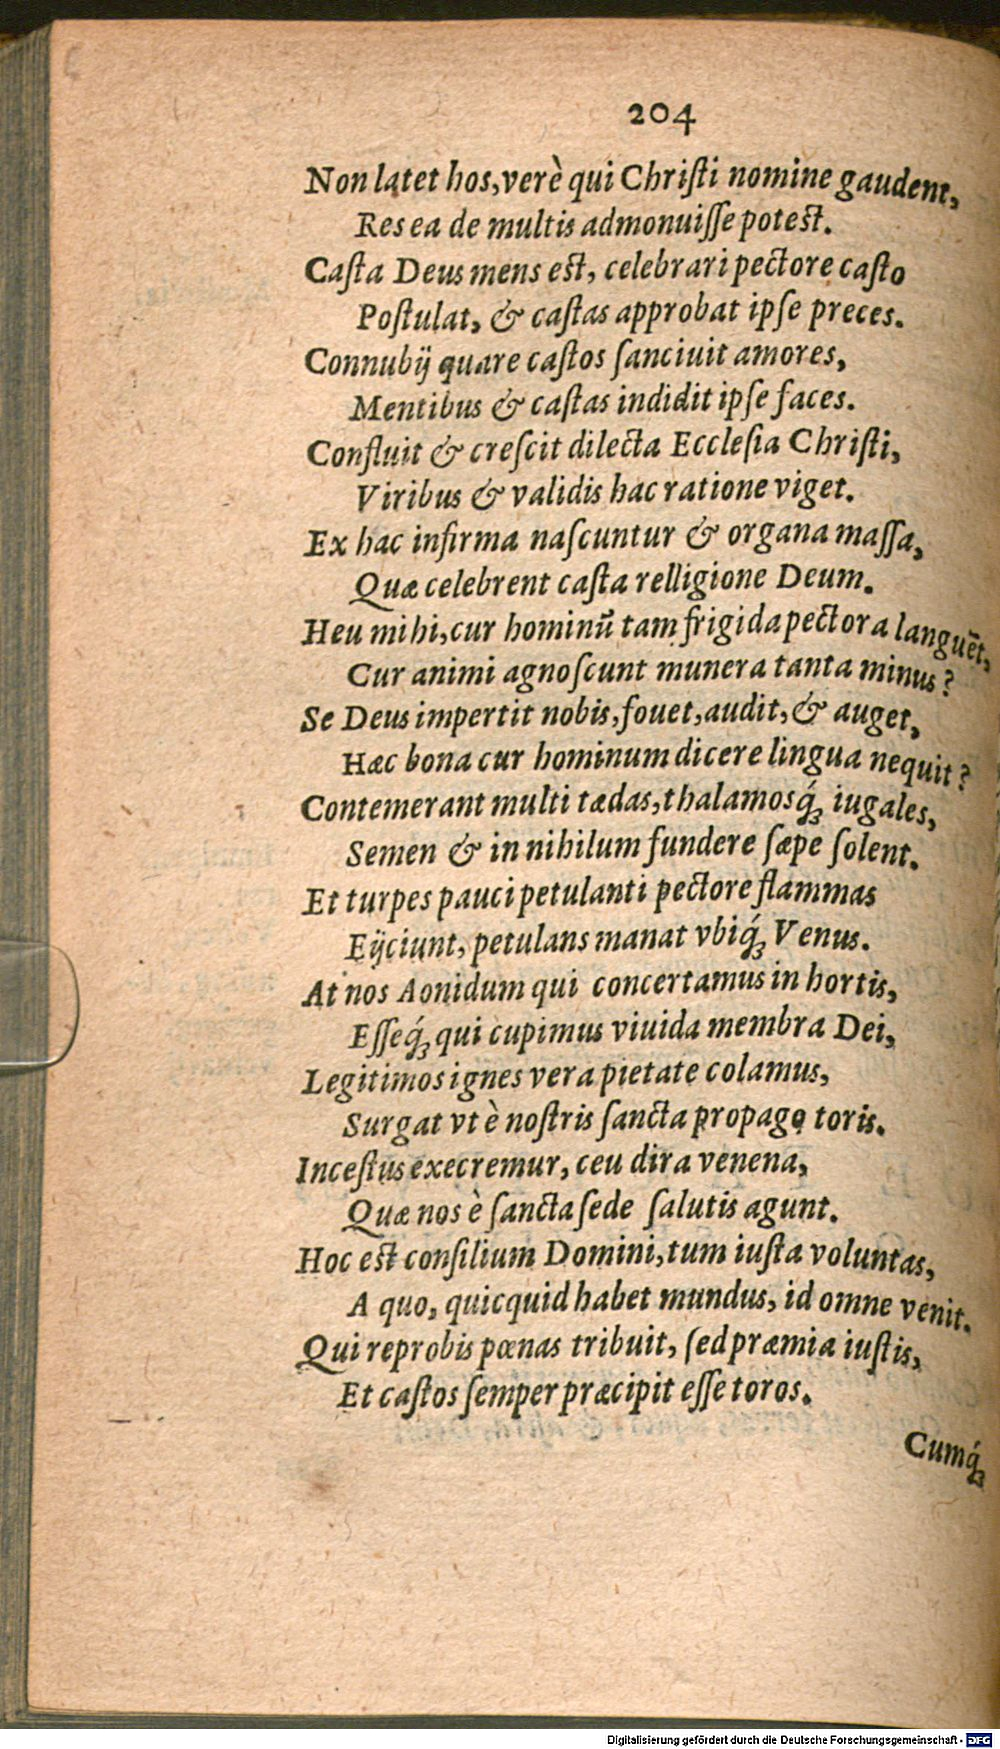 204
Non latet hos, verè qui Christi nomine gaudent,
Res ea de multis admonuisse potest.
Casta Deus mens est, celebrari pectore casto
Postulat, & castas approbat ipse preces.
Connubij quare castos sanciuit amores,
Mentibus & castas indidit ipse faces.
Confluit & crescit dilecta Ecclesia Christi,
Viribus & validis hac ratione viget.
Ex hac infirma nascuntur & organa massa,
Quæ celebrent casta relligione Deum.
Heu mihi, cur hominũ tam frigida pectora languẽt,
Cur animi agnoscunt munera tanta minus?
Se Deus impertit nobis, fouet, audit, & auget,
Hæc bona cur hominum dicere lingua nequit?
Contemerant multi tædas, thalamosq́; iugales,
Semen & in nihilum fundere sæpe solent.
Et turpes pauci petulanti pectore flammas
Eijciunt, petulans manat vbiq́; Venus.
At nos Aonidum qui concertamus in hortis,
Esseq́; qui cupimus viuida membra Dei,
Legitimos ignes vera pietate colamus,
Surgat vt è nostris sancta propago toris.
Incestus execremur, ceu dira venena,
Quæ nos è sancta sede salutis agunt.
Hoc est consilium Domini, tum iusta voluntas,
A quo, quicquid habet mundus, id omne venit.
Qui reprobis pœnas tribuit, sed præmia iustis,
Et castos semper præcipit esse toros.
Cumq́;
Digitalisierung gefördert durch die Deutsche Forschungsgemeinschaft - DFG